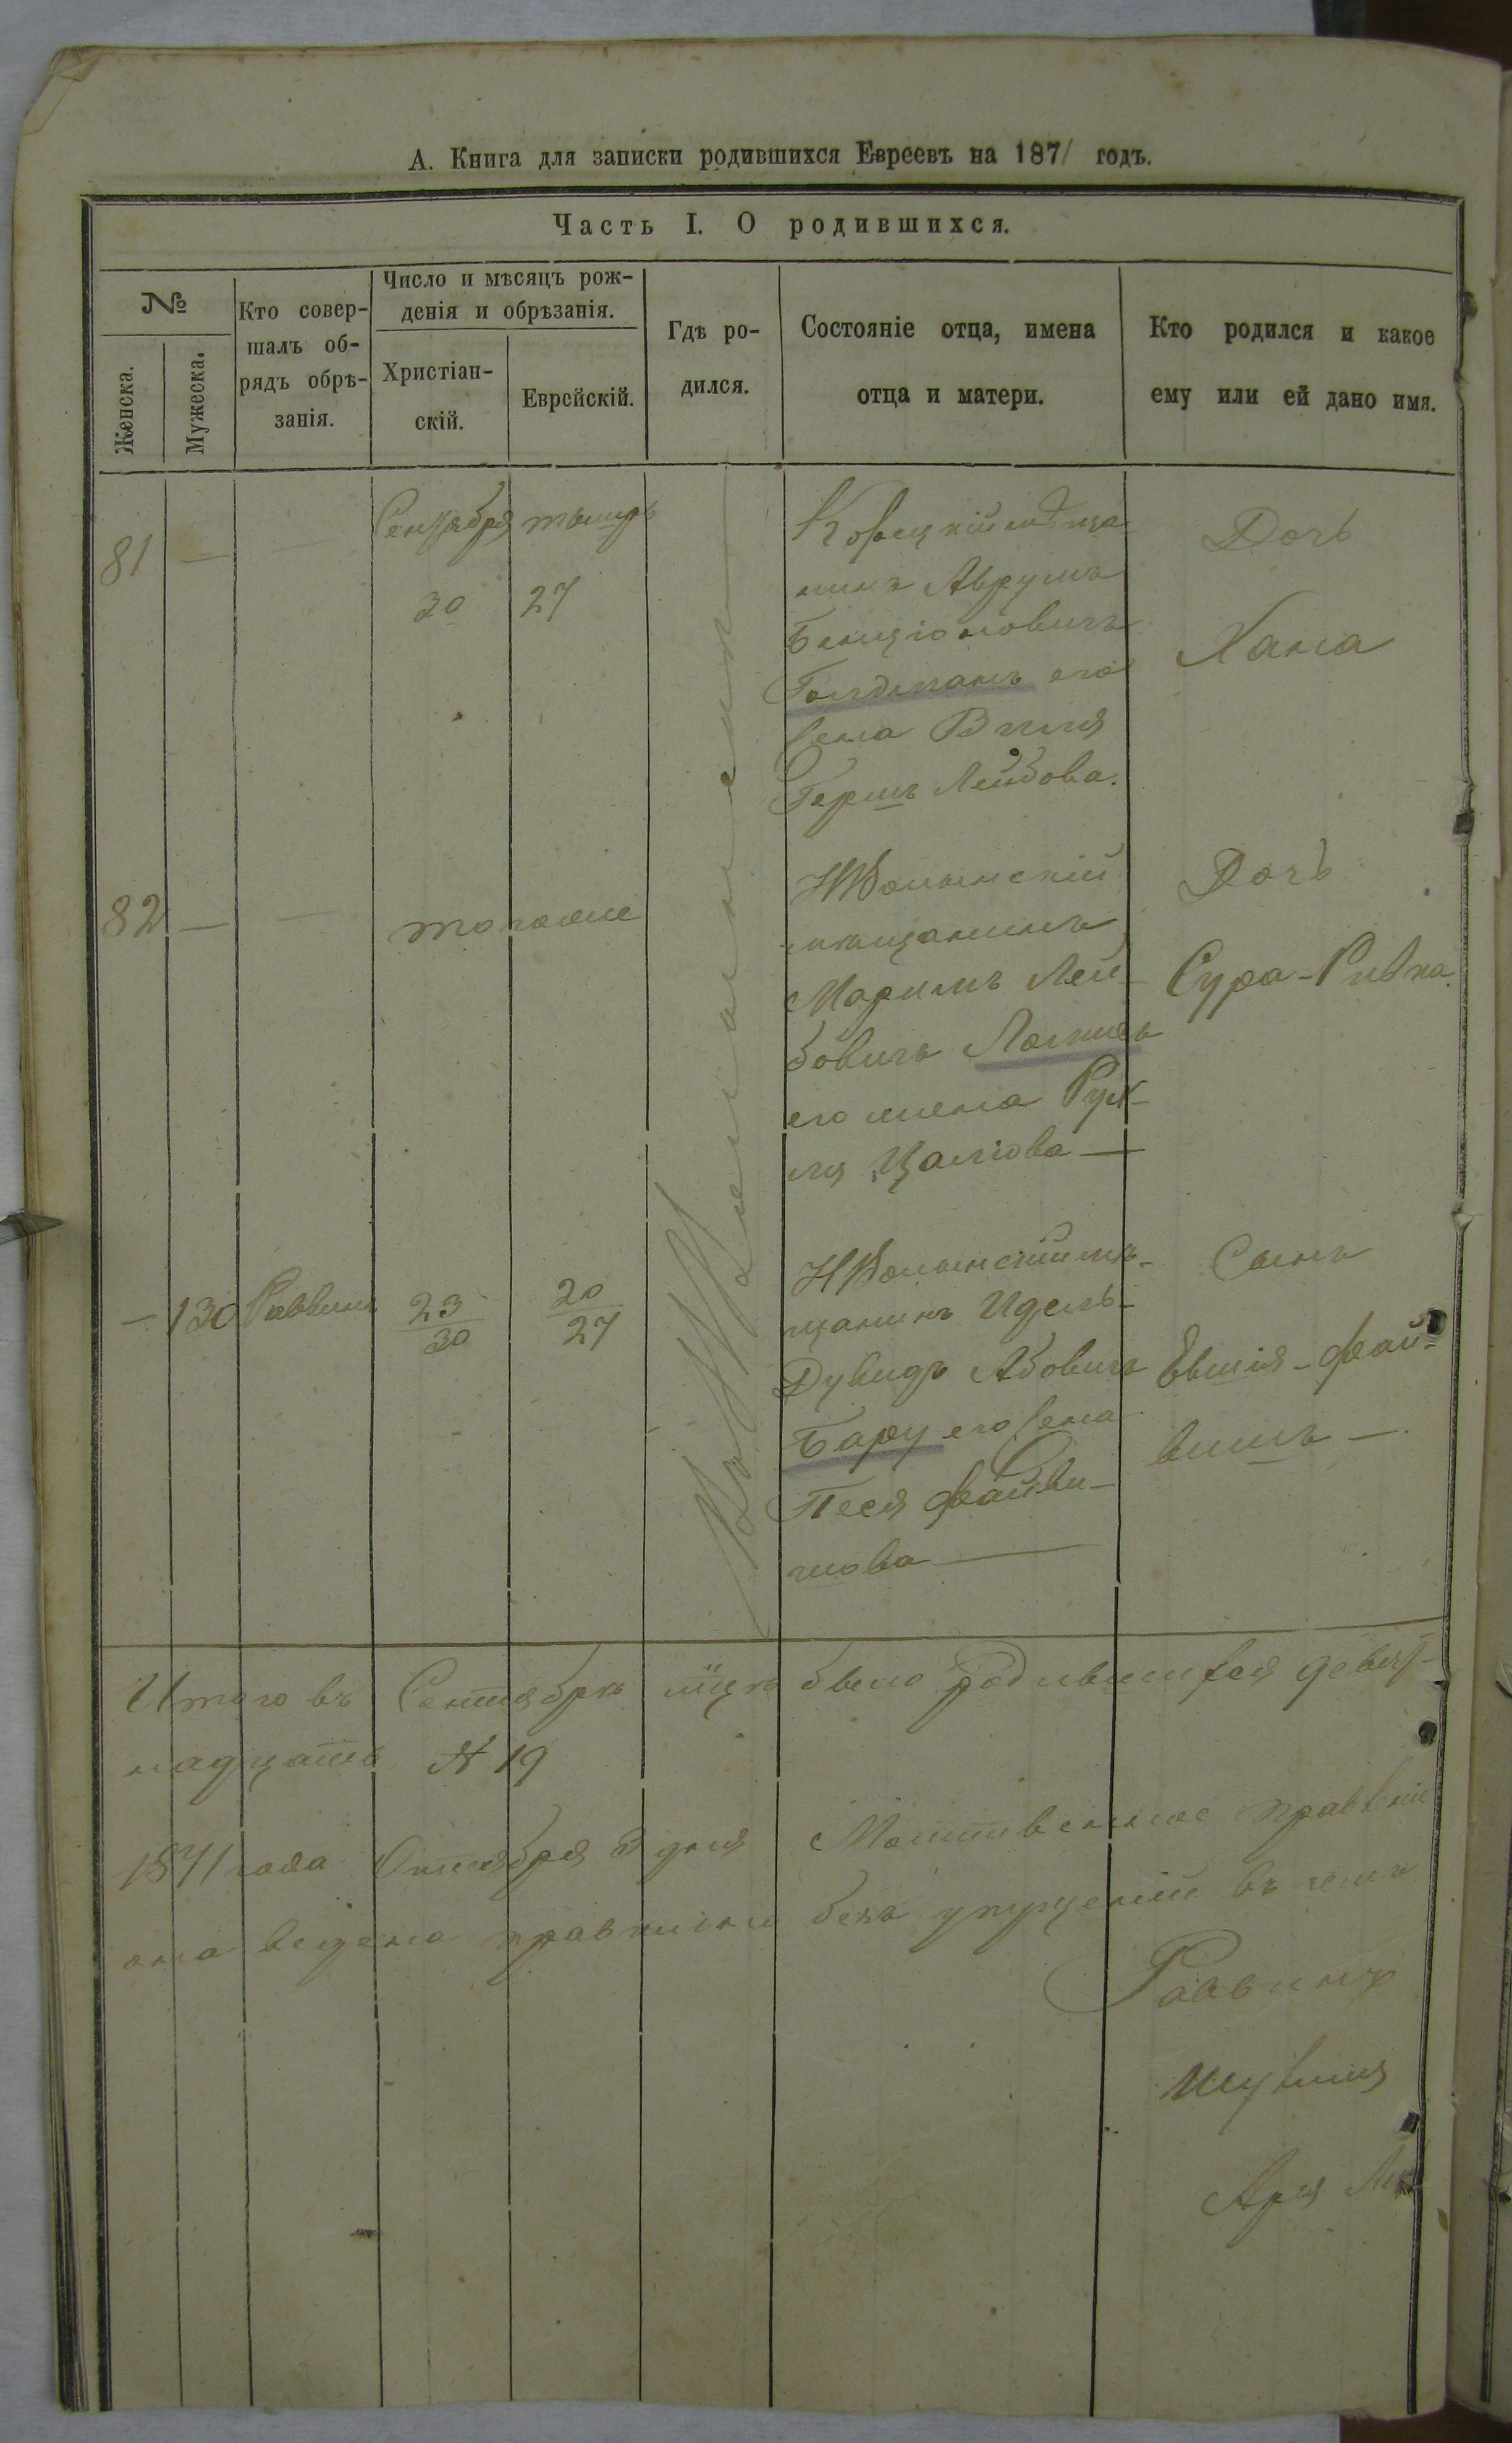 А. Книга для записки родившихся Евреевъ на 1871 годъ.
Часть I. О родившихся.
№
Женска.
Мужеска.
Кто совер-
шалъ об-
рядъ обрѣ-
занія.
Число и мѣсяцъ рож-
денія и обрѣзанія.
Христіан-
скій.
Еврейскій.
Гдѣ ро-
дился.
Состояніе отца, имена
отца и матери.
Кто родился и какое
ему или ей дано имя.
81 — —
Сентября тышръ
30 27
Корецкій мѣща
нинъ Аврумъ
Бенціоновичъ
Голдманъ его
жена
Гершъ Лейбова.
Дочь
Хана
82 — —
тогоже
НВолынскій
мѣщанинъ
Лей-
бовичъ
его жена Рух-
ля
Дочь
Сура-Ривка
— 130 Раввинъ
23
30
20
27
НВолынскій мѣ-
щанинъ Идель-
Дувидъ Абовичъ
его жена
Песя Файви-
шова —
Сынъ
Евшія-Фай-
вишъ —
Итого въ Сентябрѣ мцѣ было родившихся девят-
надцать № 19
1871 года Октября 3 дня
она ведена правильно безъ упущеній въ чемъ
Раввинъ